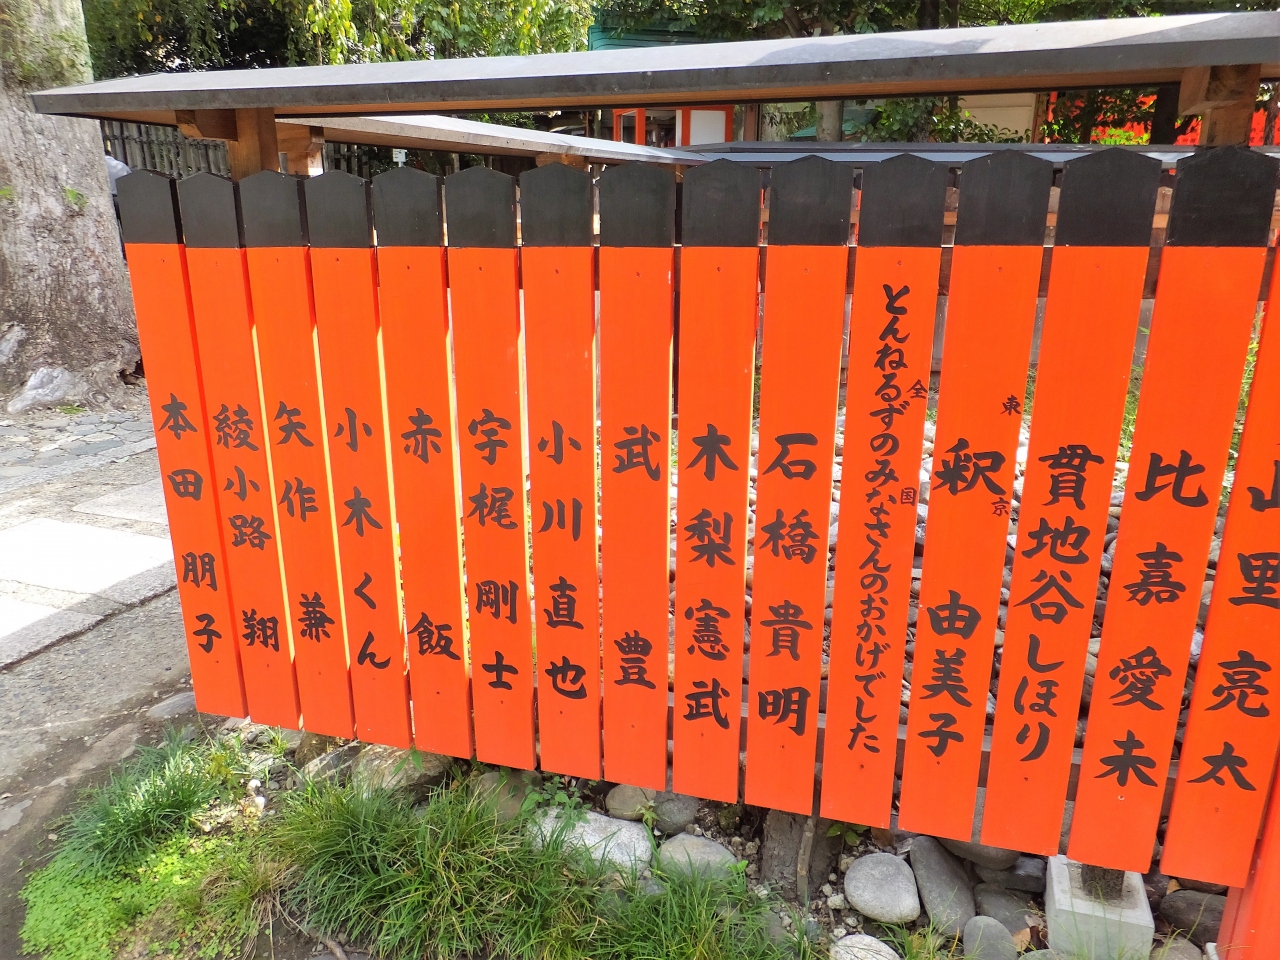 山里亮太
比嘉愛未
貫地谷しほり
東京
釈由美子
全国
とんねるずのみなさんのおかげでした
石橋貴明
木梨憲武
武豊
小川直也
宇梶剛士
赤飯
小木くん
矢作兼
綾小路翔
本田朋子